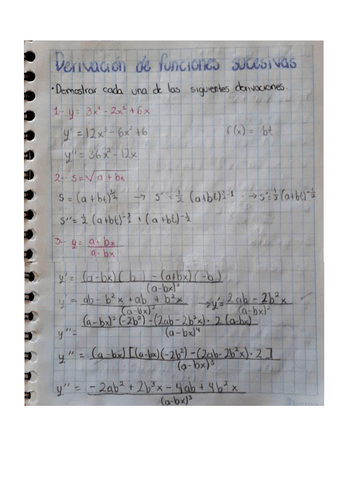 Derivación de funciones sucesivas
• Demostrar cada una de las siguientes derivaciones.
1.- y = 3x⁴ - 2x³ + 6x
y' = 12x³ - 6x² + 6 f(x) = bt
y'' = 36x² - 12x
2.- s = √a + bx
s = (a + bt)^½ → s' = ½ (a+bt)^½-1 → s' = ½ (a+bt)^-½
s'' = ½ (a+bt)^-3/2 + (a+bt)^-½
3.- y = a + bx / a - bx
y' = (a-bx)(b) - (a+bx)(-b) / (a-bx)²
y' = ab - b²x + ab + b²x / (a-bx)² → y' = 2ab - 2b²x / (a-bx)²
y'' = (a-bx)² (-2b²) - (2ab-2b²x) - 2(a-bx) / (a-bx)⁴
y'' = (a-bx) [(a-bx)(-2b²) - (2ab-2b²x) - 2] / (a-bx)³
y'' = -2ab² + 2b³x - 4ab + 4b²x / (a-bx)³